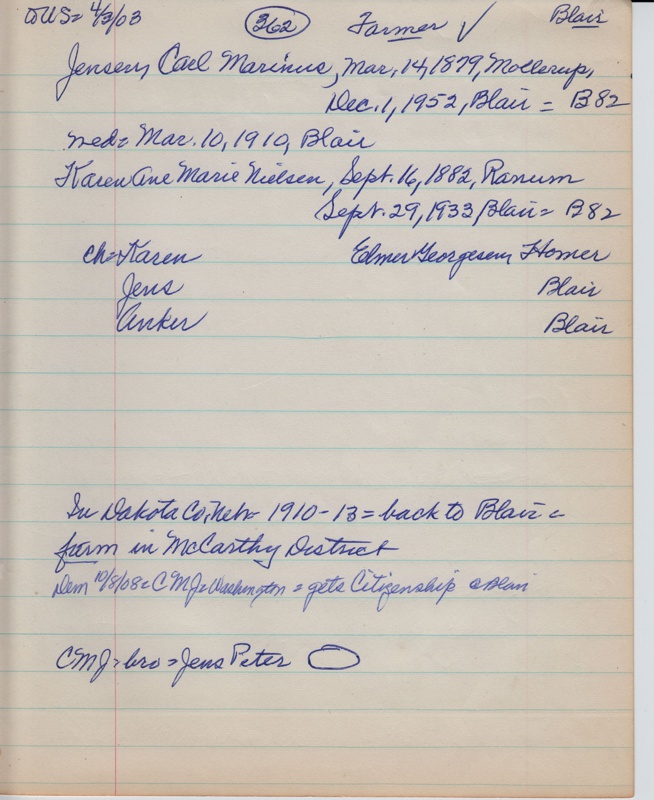 to US = 4/3/03 362 Farmer ✓ Blair
Jensen, Carl Marinus, Mar. 14, 1879, Mollerup,
Dec. 1, 1952, Blair = B82
wed = Mar. 10, 1910, Blair
Karen Ane Marie Nielsen, Sept. 16, 1882, Ranum
Sept. 29, 1933 Blair = B82
ch = Karen Elmer Georgesen, Homer
Jens Blair
Anker Blair
In Dakota Co, Neb - 1910-13 = back to Blair =
farm in McCarthy District
Dem 10/8/08 = CMJ = Washington = gets Citizenship @ Blair
CMJ = bro = Jens Peter